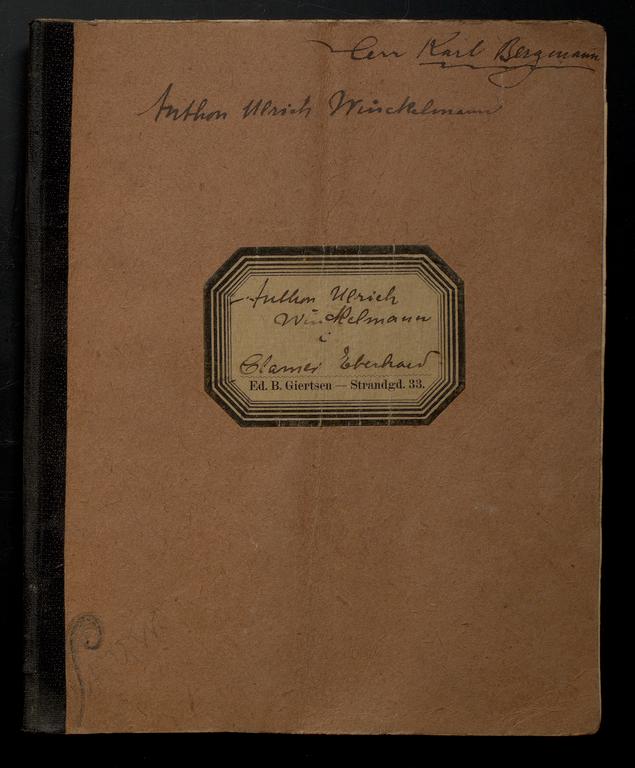 Herr Karl Bergmann
Anthon Ulrich Winckelmann
Anthon Ulrich
Winckelmann
i
Clamer Eberhard
Ed. B. Giertsen — Strandgd. 33.